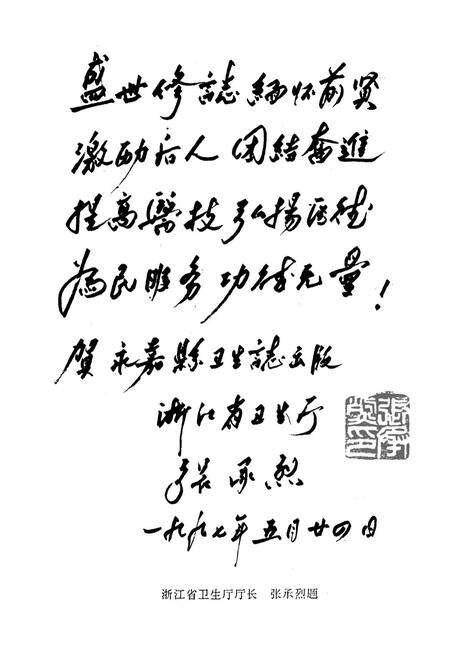 盛世修誌缅怀前贤
激励后人团结奋進
提高醫技弘揚医德
為民服务功德无量！
賀永嘉縣卫生誌出版
浙江省卫生厅
张承烈
一九九七年五月廿四日
浙江省卫生厅厅长　张承烈题